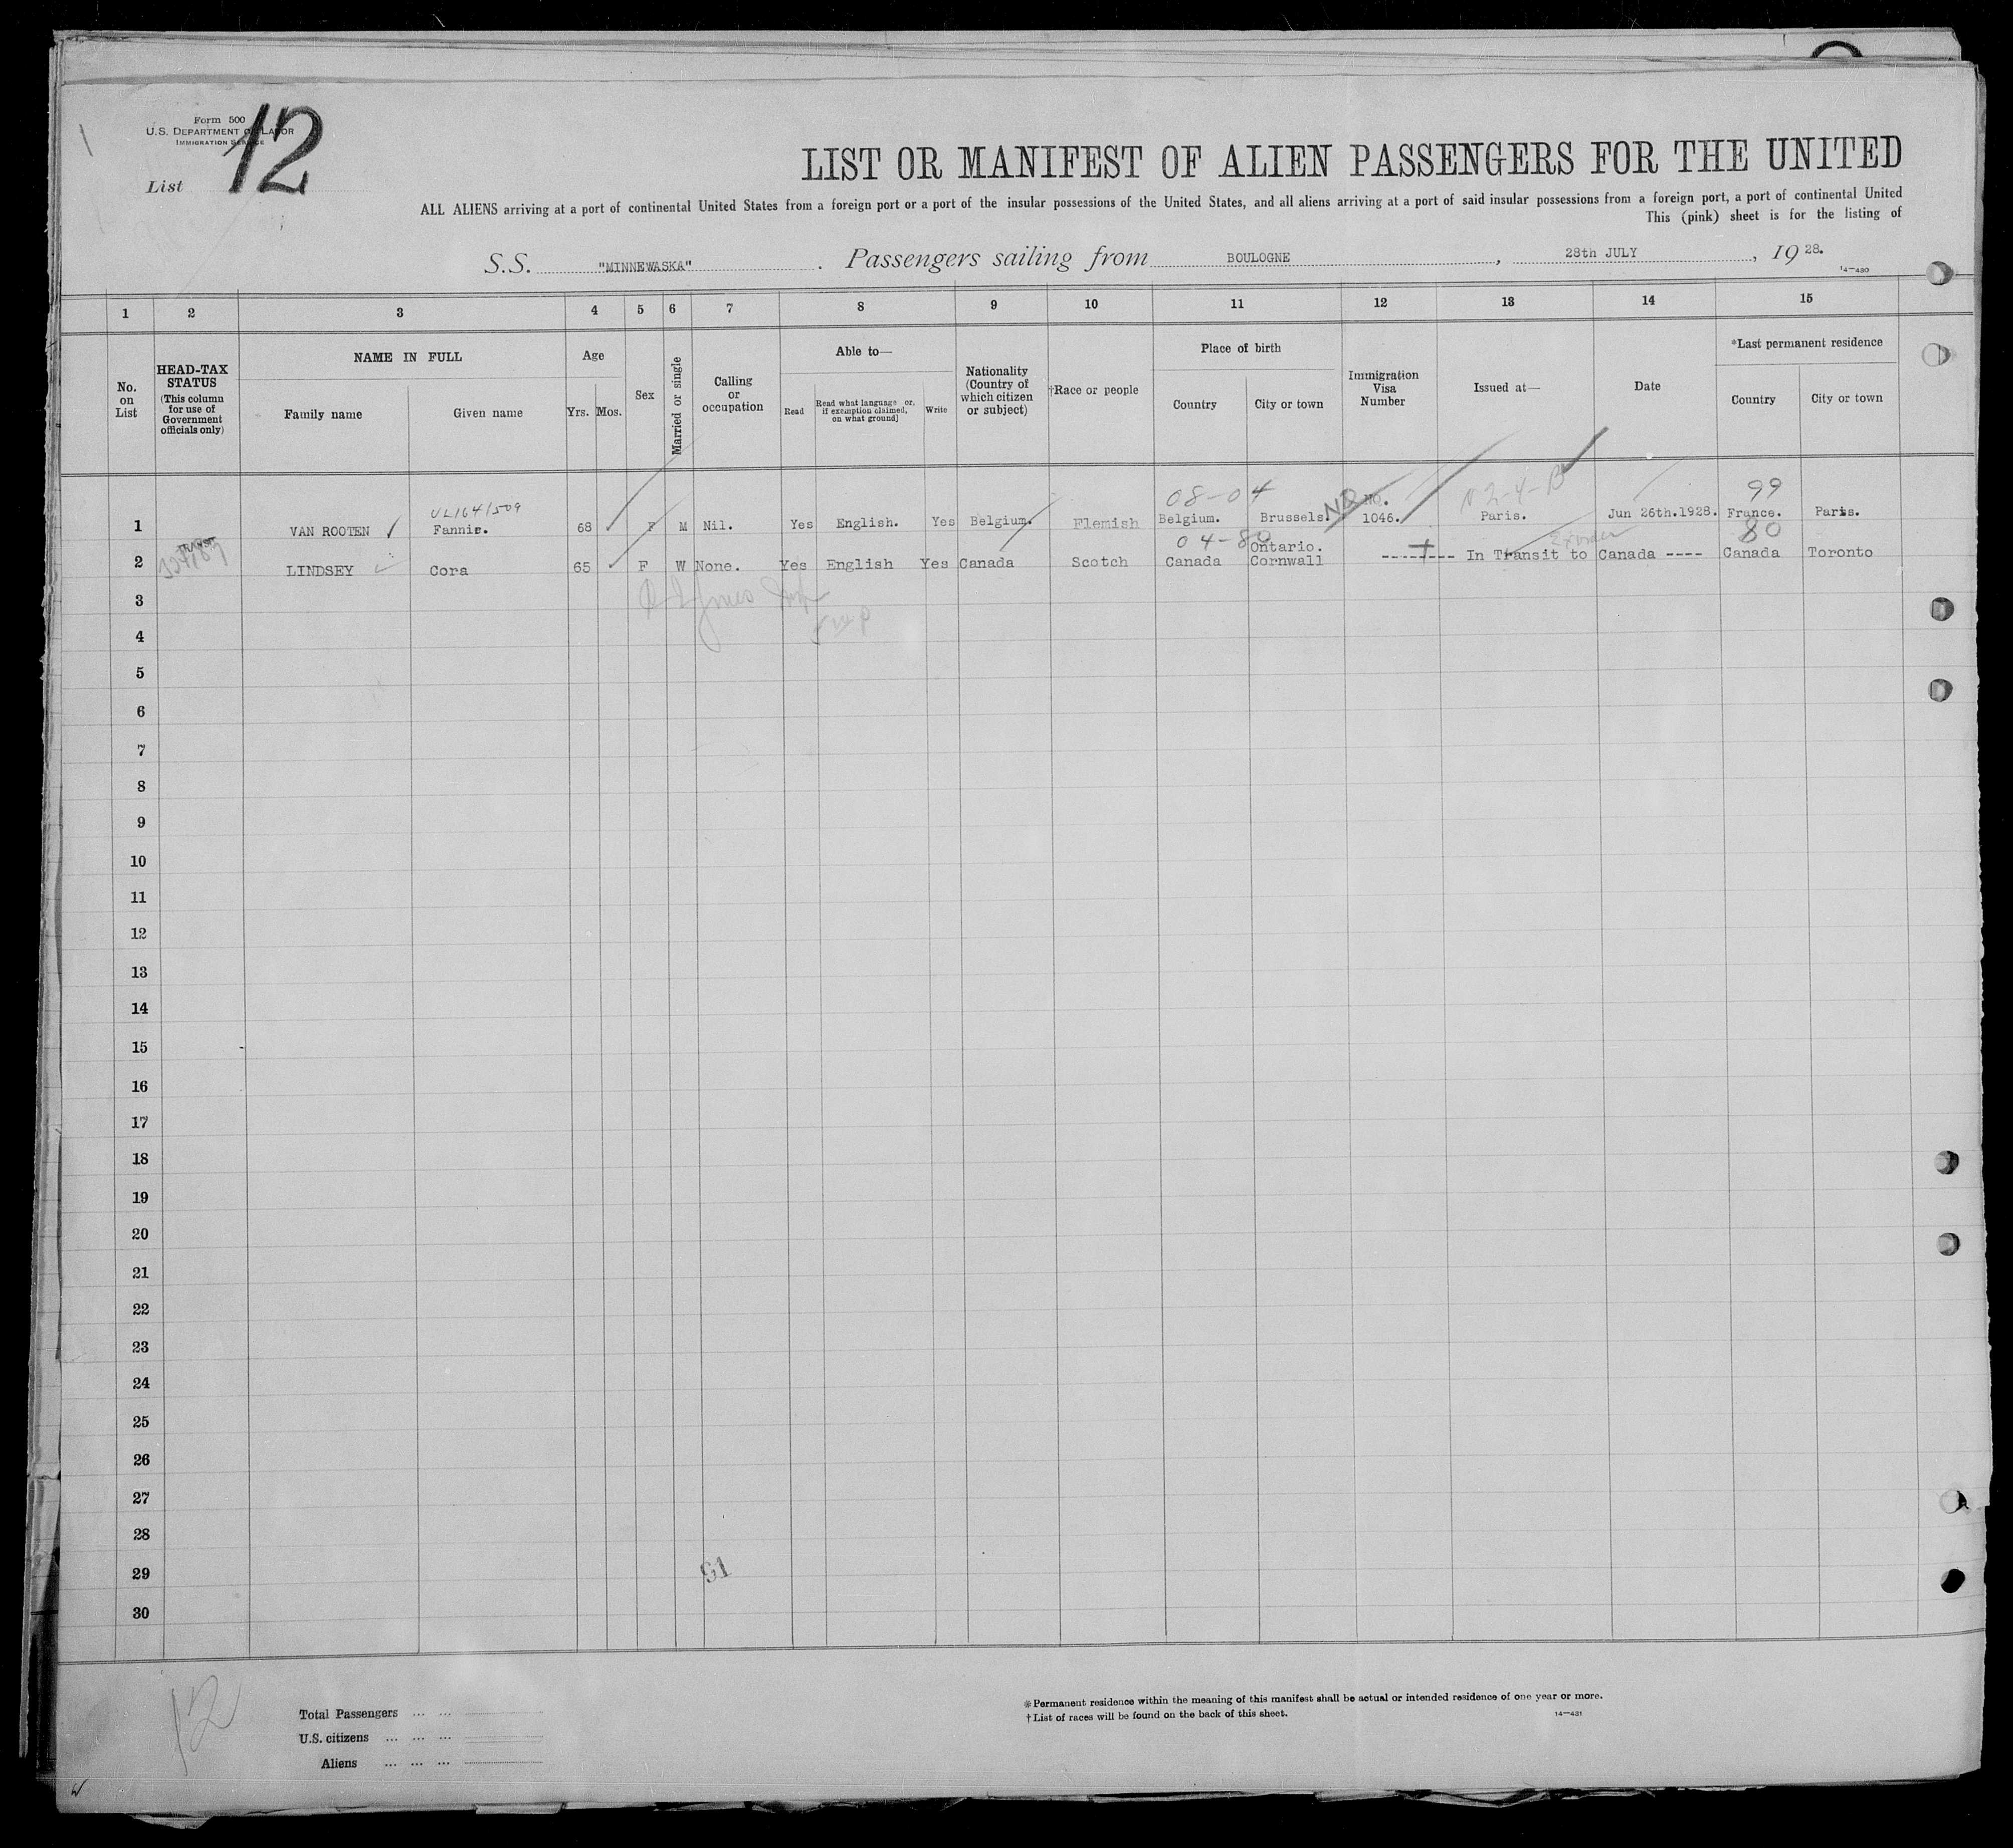 Form 500
U.S. DEPARTMENT OF LABOR
IMMIGRATION SERVICE
List 12
LIST OR MANIFEST OF ALIEN PASSENGERS FOR THE UNITED
ALL ALIENS arriving at a port of continental United States from a foreign port or a port of the insular possessions of the United States, and all aliens arriving at a port of said insular possessions from a foreign port, a port of continental United
This (pink) sheet is for the listing of
S.S. "MINNEWASKA" . Passengers sailing from BOULOGNE, 28th JULY, 19 28.
14—480
1 2 3 4 5 6 7 8 9 10 11 12 13 14 15
No. on List
HEAD-TAX STATUS (This column for use of Government officials only)
NAME IN FULL
Family name Given name
Age
Yrs. Mos.
Sex
Married or single
Calling or occupation
Able to—
Read Read what language or, if exemption claimed, on what ground] Write
Nationality (Country of which citizen or subject)
†Race or people
Place of birth
Country City or town
Immigration Visa Number
Issued at—
Date
*Last permanent residence
Country City or town
VL1641509 08-04 NR No. N2-4-B 99
1 VAN ROOTEN Fannie. 68 F M Nil. Yes English. Yes Belgium. Flemish Belgium. Brussels. 1046. Paris. Jun 26th.1928. France. Paris.
04-80 Ontario. 80
2 LINDSEY Cora 65 F W None. Yes English Yes Canada Scotch Canada Cornwall -------- In Transit to Canada ---- Canada Toronto
3
4
5
6
7
8
9
10
11
12
13
14
15
16
17
18
19
20
21
22
23
24
25
26
27
28
29
30
51
12
Total Passengers ... ...
U.S. citizens ... ... ...
Aliens ... ... ...
* Permanent residence within the meaning of this manifest shall be actual or intended residence of one year or more.
† List of races will be found on the back of this sheet.
14—481